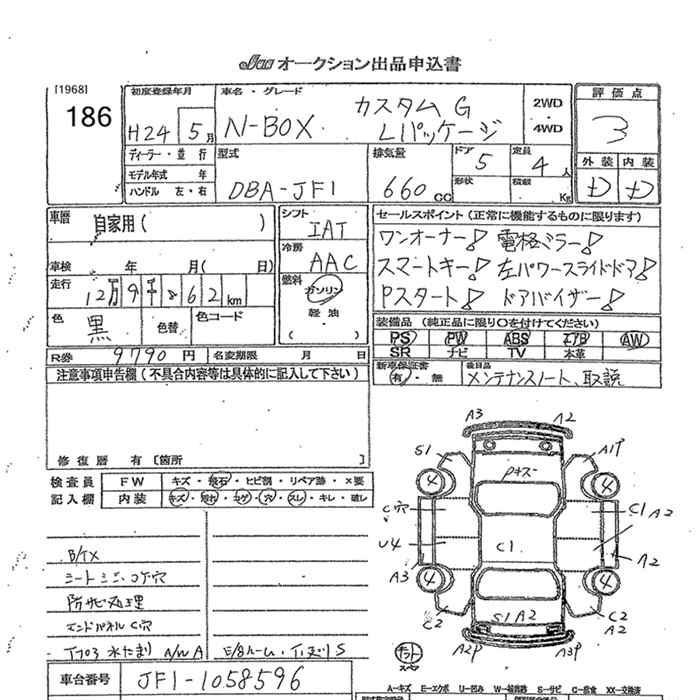 JAA オークション出品申込書
[1968]
186
初度登録年月
H24 5月
車名・グレード
N-BOX
カスタム G
Lパッケージ
2WD
・
4WD
評価点
3
外装 内装
D D
ディーラー・並行
モデル年式 年
ハンドル 左・右
型式
DBA-JF1
排気量
660 CC
ドア 5
形状
定員 4人
積載 Kg
車歴
自家用( )
車検 年 月( 日)
走行
12万9千062km
色
黒
色替
色コード
R券 9790円
名変期限 月 日
シフト
IAT
冷房
AAC
燃料
ガソリン
軽油
( )
セールスポイント(正常に機能するものに限ります)
ワンオーナー! 電格ミラー!
スマートキー! 左パワースライドドア!
Pスタート! ドアバイザー!
装備品(純正品に限り○を付けてください)
PS PW ABS エアB AW
SR ナビ TV 本革
新車保証書
有・無
後日品
メンテナンスノート、取説
注意事項申告欄(不具合内容等は具体的に記入して下さい)
修復歴 有[箇所 ]
検査員
記入欄
FW キズ・飛石・ヒビ割・リペア跡・×要
内装 キズ・汚れ・コゲ・穴・スレ・キレ・破レ
シートシミ、コゲ穴
防サビ処理
エンドパネル C穴
A3 A2
S1 A1P
Pキズ
4 4
C穴 C1 A2
U4 C1
A3 A2
4 4
C2 S1 A2 C2
A2
A2P A3P
車台番号 JF1-1058596
A=キズ E=エクボ U=凹み W=補修跡 S=サビ C=腐食 XX=交換済